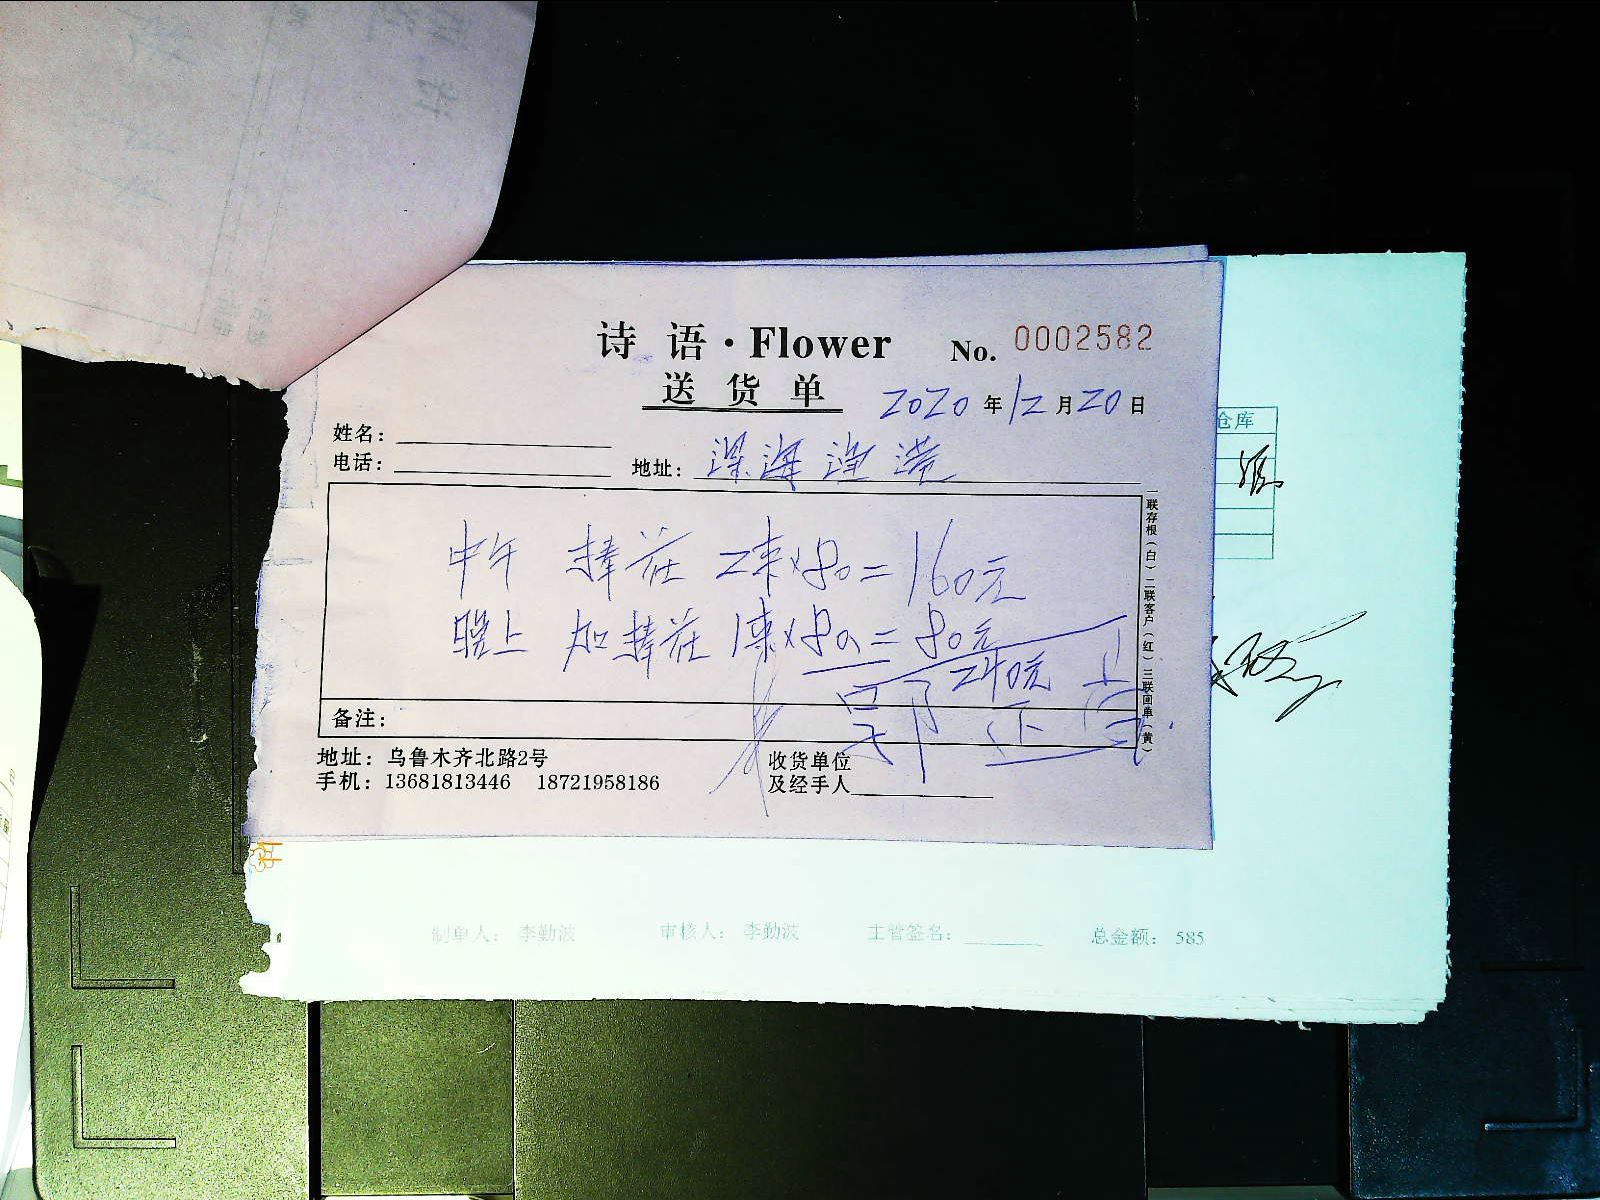 诗 语·Flower No. 0002582
送 货 单 2020年12月20日
姓名：
电话： 地址：深海渔港
中午 捧花 2束×80=160元
晚上 加捧花 1束×80=80元
240元
备注：
地址：乌鲁木齐北路2号 收货单位
手机：13681813446 18721958186 及经手人
一联存根（白）二联客户（红）三联回单（黄）
仓库
制单人： 李勤波 审核人： 李勤波 主管签名： 总金额： 585